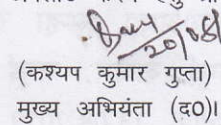 20/08/
(कश्यप कुमार गुप्ता)
मुख्य अभियंता (द०)।